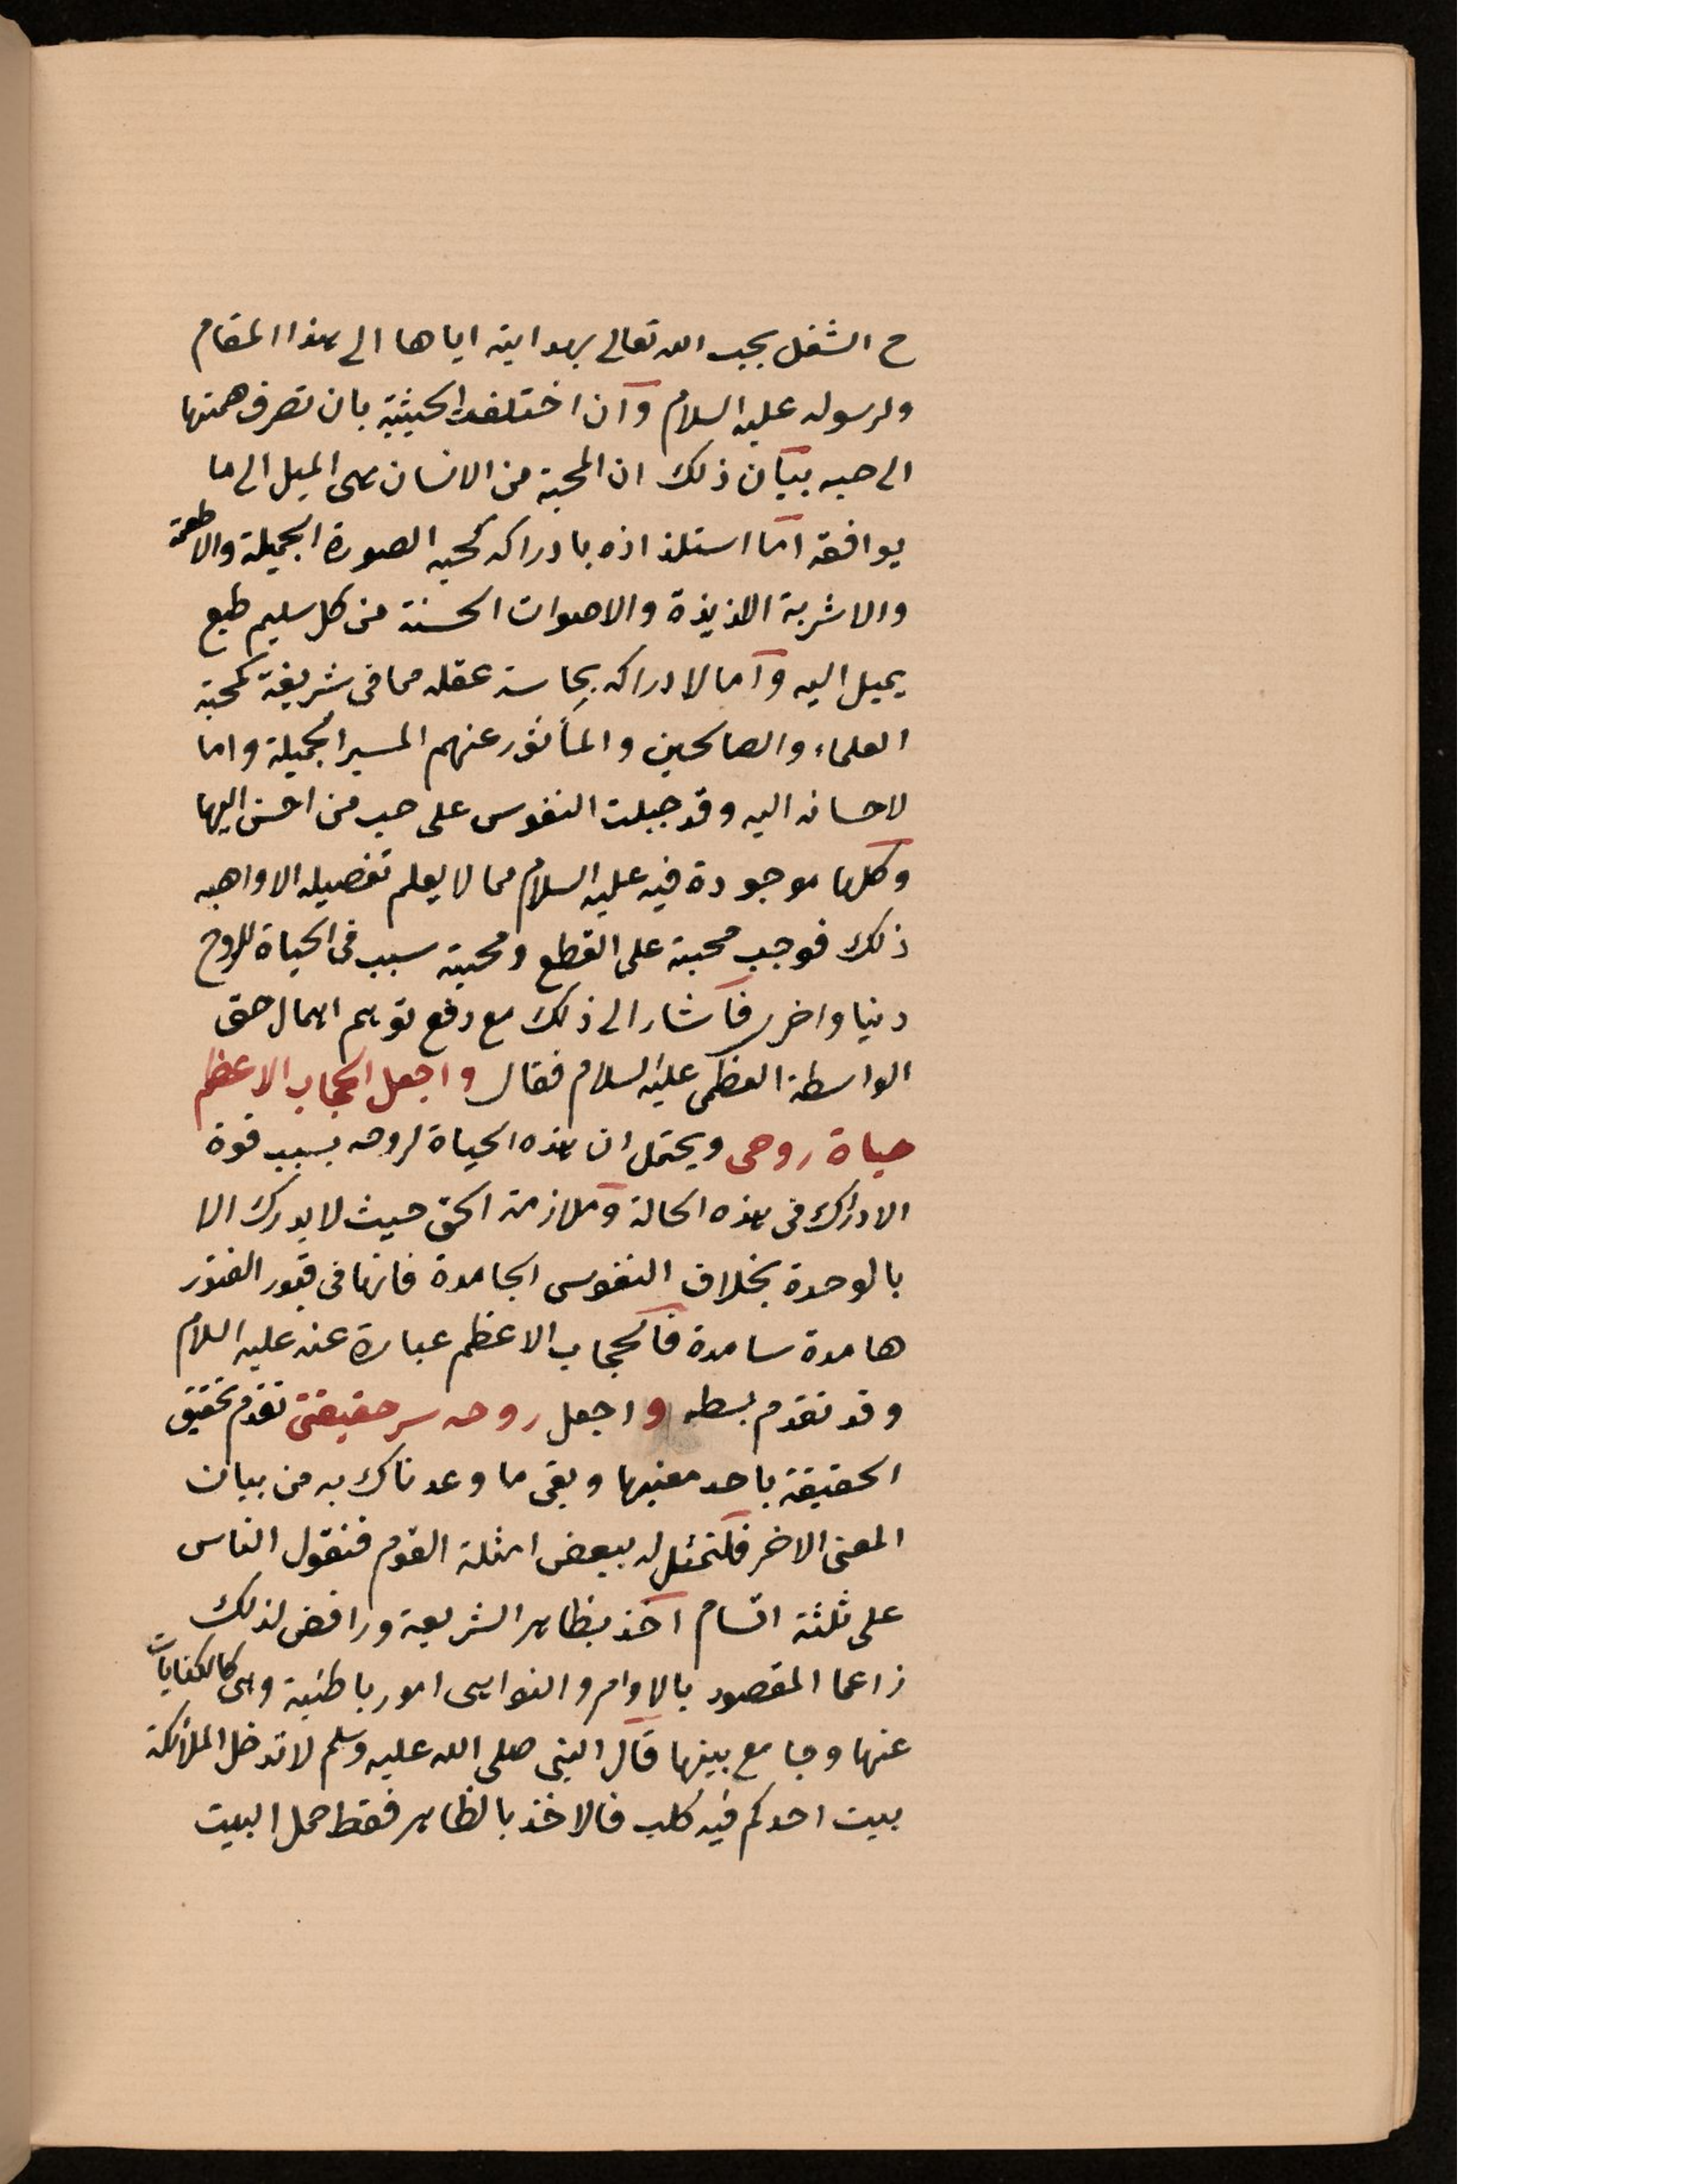 ح الشغل بحب الله تعالى بهدايته اياها الى هذا المقام
ولرسوله عليه السلام وان اختلفت الحيثية بان تصرف همتها
الى حبه بيان ذلك ان المحبة من الانسان هى الميل الى ما
يوافقه اما استلذاذه بادراكه كحبه الصورة الجميلة والاطعمة
والاشربة اللذيذة والاصوات الحسنة من كل سليم طبع
يميل اليه واما لادراكه بحاسة عقله معانى شريفة كمحبة
العلماء والصالحين والمأثور عنهم السير الجميلة واما
لاحسانه اليه وقد جبلت النفوس على حب من احسن اليها
وكلها موجودة فيه عليه السلام مما لا يعلم تفصيله الا واهبه
ذلك فوجب محبته على القطع ومحبته سبب فى الحياة للروح
دنيا واخرى فاشار الى ذلك مع دفع توهم اهمال حق
الواسطة العظمى عليه السلام فقال واجعل الحجاب الاعظم
حياة روحى ويحتمل ان هذه الحياة لروحه بسبب قوة
الادراك فى هذه الحالة وملازمة الحق حيث لا يدرك الا
بالوحدة بخلاف النفوس الجامدة فانها فى قبور الفتور
هامدة سامدة فالحجاب الاعظم عبارة عنه عليه السلام
وقد تقدم بسطه واجعل روحه سر حقيقتى تقدم تحقيق
الحقيقة باحد معنيها وبقى ما وعدناك به من بيان
المعنى الاخر فلنمثل له ببعض امثلة القوم فنقول الناس
على ثلثة اقسام آخذ بظاهر الشريعة ورافض لذلك
زاعما المقصود بالاوامر والنواهى امور باطنية وهى كالكنايات
عنها وجامع بينها قال النبى صلى الله عليه وسلم لا تدخل الملائكة
بيت احدكم فيه كلب فالاخذ بالظاهر فقط حمل البيت